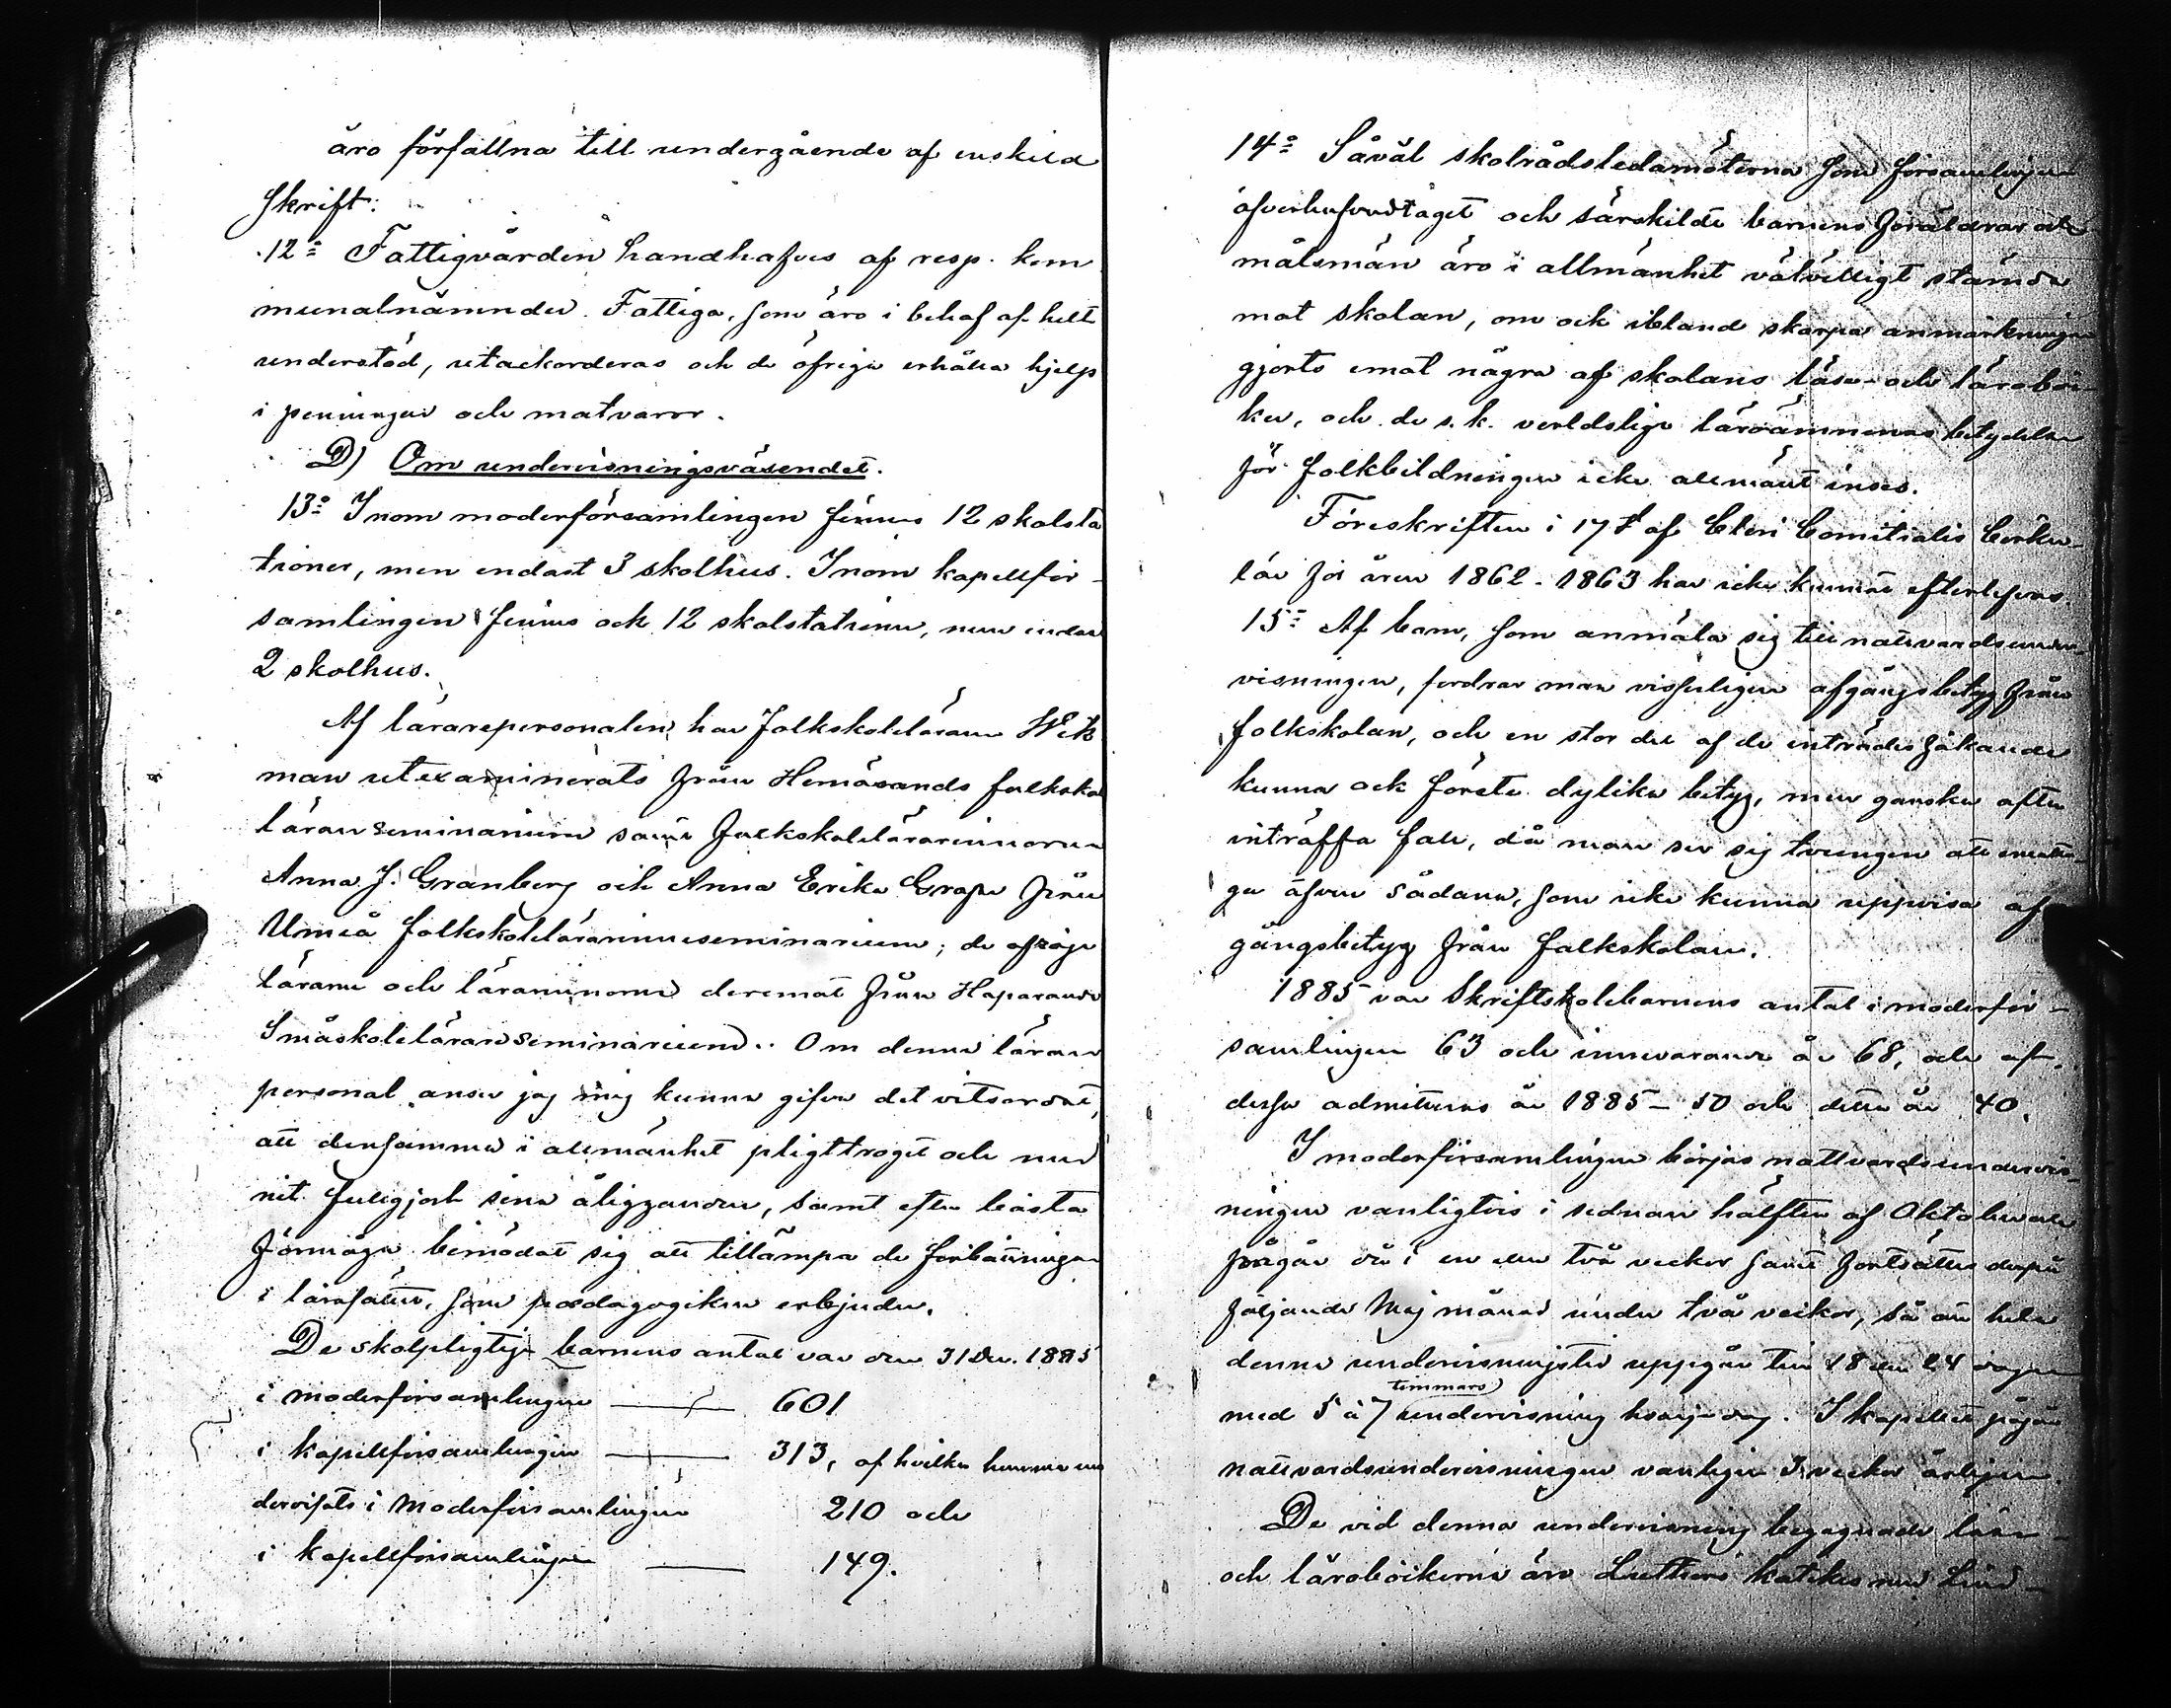 äro förfallna till undergående af enskild
skrift.
12:o Fattigvården handhafves af resp. kom
munalnämnder. Fattiga, som äro i behof af helt
understöd, utackorderas och de öfriga erhålla hjelp
i penningar och matvaror.
D) Om undervisningsväsendet.
13:o Inom moderförsamlingen finnes 12 skolsta
tioner, men endast 3 skolhus. Inom kapellför-
samlingen finnes ock 12 skolstationer, men endast
2 skolhus.
Af lärarepersonalen har folkskoleläraren Wik
man utexaminerats från Hernösands folkskole
lärareseminarium samt folkskolelärarinnorna
Anna J. Granberg och Anna Erika Grape från
Umeå folkskolelärarinneseminarium; de öfriga
lärarne och lärarinnorna deremot från Haparanda
Småskolelärareseminarium. Om denna lärare
personal anser jag mig kunna gifva det vitsordet,
att densamma i allmänhet pligttroget och med
nit fullgjort sina åligganden, samt efter bästa
förmåga bemödat sig att tillämpa de förbättringar
i lärosätten, som pædagogiken erbjuder.
De skolpligtiga barnens antal var den 31 Dec. 1885
i moderförsamlingen — 601
i kapellförsamlingen — 313, af hvilka hemma un
dervisats i moderförsamlingen 210 och
i kapellförsamlingen — 149.
14:o Såväl skolrådsledamöterna som församlingen
öfverhufvudtaget och särskildt barnens föräldrar och
målsmän äro i allmänhet välvilligt stämda
mot skolan, om ock ibland skarpa anmärkningar
gjorts emot några af skolans läse- och lärobö-
ker, och de s.k. verldsliga läroämnenas betydelse
för folkbildningen icke allmänt inses.
Föreskriften i 17 § af Cleri Comitialis Cirku-
lär för åren 1862-1863 har icke kunnat efterlefvas.
15:o Af barn, som anmäla sig till nattvardsunder-
visningen, fordrar man visserligen afgångsbetyg från
folkskolan, och en stor del af de inträdessökande
kunna ock förete dylika betyg, men ganska ofta
inträffa fall, då man ser sig tvungen att emotta-
ga äfven sådana, som icke kunna uppvisa af
gångsbetyg från folkskolan.
1885 var Skriftskolebarnens antal i moderför-
samlingen 63 och innevarande år 68, och af
dessa admitterats år 1885 – 50 och detta år 40.
I moderförsamlingen börjas nattvardsundervis-
ningen vanligtvis i sednare hälften af Oktober och
pågår då i en eller två veckor samt fortsättes derpå
följande Maj månad under två veckor, så att hela
denna undervisningstid uppgår till 18 eller 24 dagar
timmars
med 5 à 7 undervisning hvarje dag. I kapellet pågår
nattvardsundervisningen vanligen 3 veckor årligen.
De vid denna undervisning begagnade läse-
och läroböckerna äro Luthers katekes med Lind-